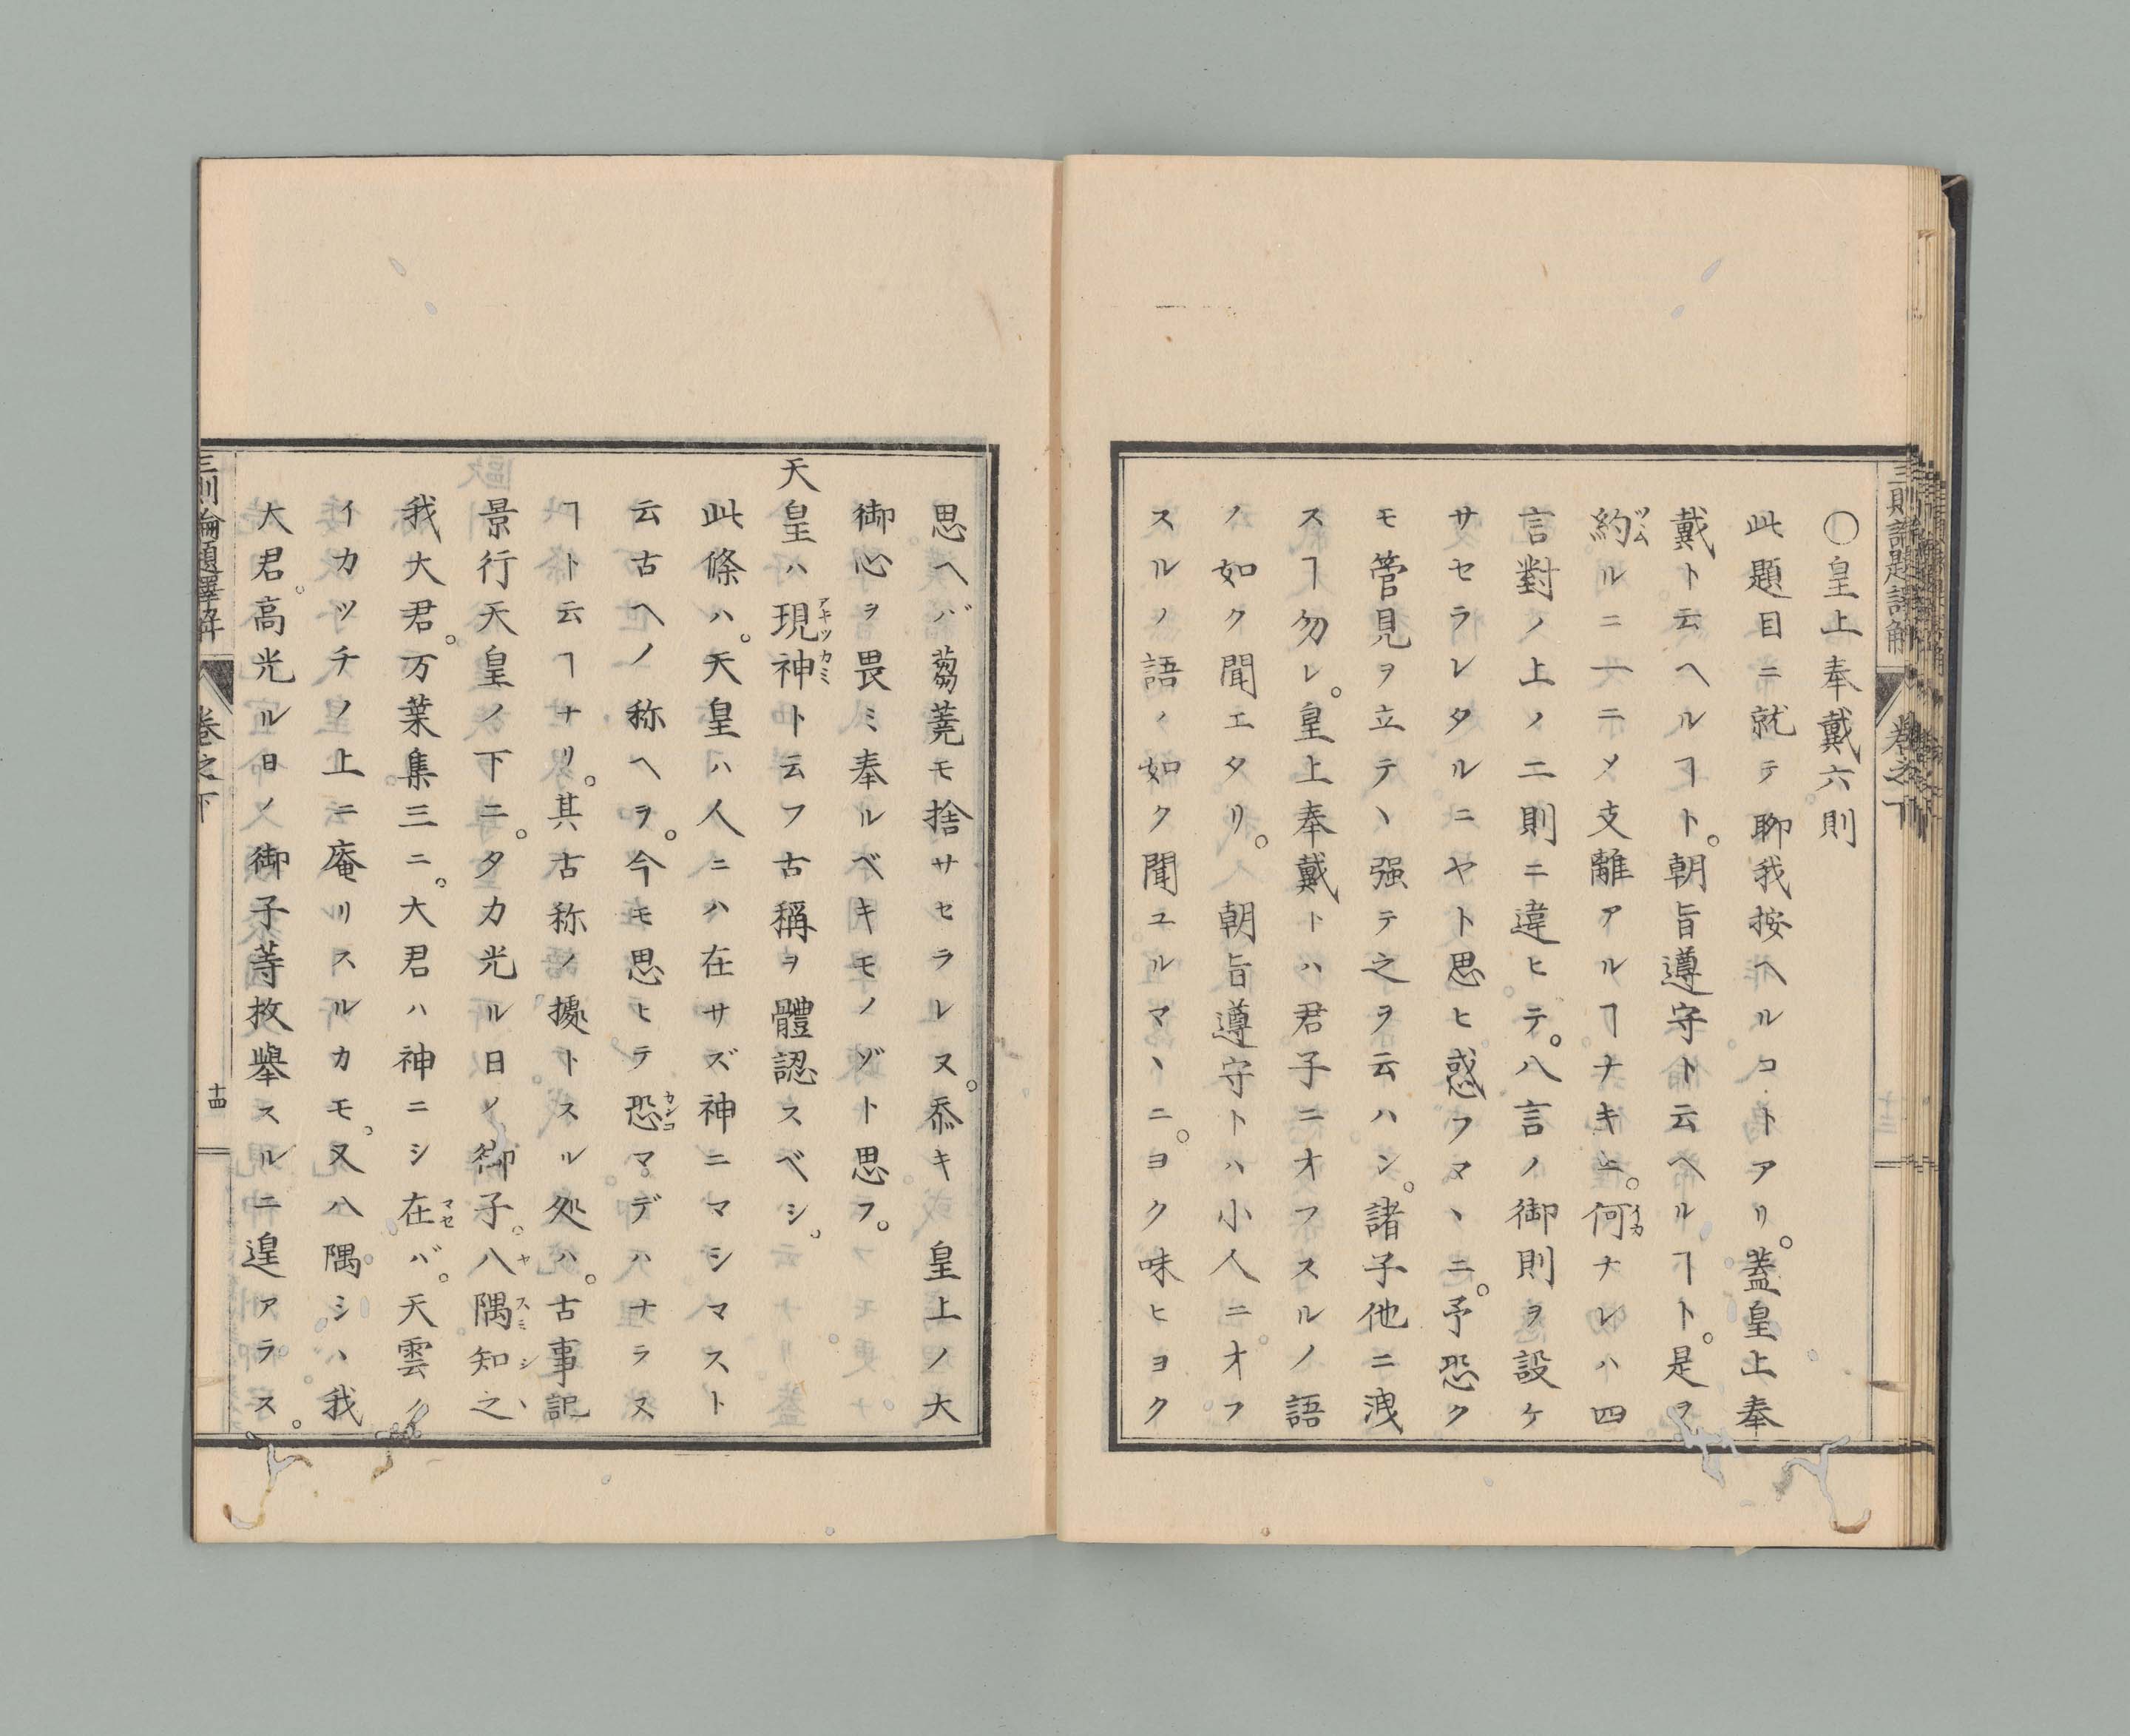 〇皇上奉戴六則
此題目ニ就テ聊我按ヘルコトアリ。蓋皇上奉
戴ト云ヘルヿト。朝旨遵守ト云ヘルヿト。是ヲ
約ルニ一ニメ支離アルヿナキニ。何ナレハ四
言對ノ上ノ二則ニ違ヒテ。八言ノ御則ヲ設ケ
サセラレタルニヤト思ヒ惑フマヽニ。予恐ク
モ管見ヲ立テヽ强テ之ヲ云ハン。諸子他ニ洩
スヿ勿レ。皇上奉戴トハ君子ニオフスルノ語
ノ如ク聞エタリ。朝旨遵守トハ小人ニ。オフ
スルノ語ノ如ク聞ユルマヽニ。ヨク味ヒヨク
思ヘバ蒭蕘モ捨サセラレス。忝キ皇上ノ大
御心ヲ畏ミ奉ルベキモノゾト思フ。
天皇ハ現神ト云フ古稱ヲ體認スベシ。
此條ハ。天皇ハ人ニハ在サズ神ニマシマスト
云古ヘノ称ヘヲ。今モ思ヒテ恐マデハナラス
ヿト云ヿナリ。其古称ノ據トスル処ハ。古事記
景行天皇ノ下ニ。タカ光ル日ノ御子。八隅知之
我大君。万葉集三ニ。大君ハ神ニシ在バ。天雲ノ
イカツチノ上ニ庵リスルカモ。又八隅シヽ我
大君。高光ル日ノ御子等枚擧スルニ遑アラス。
三則論題譯解
卷之下
十四